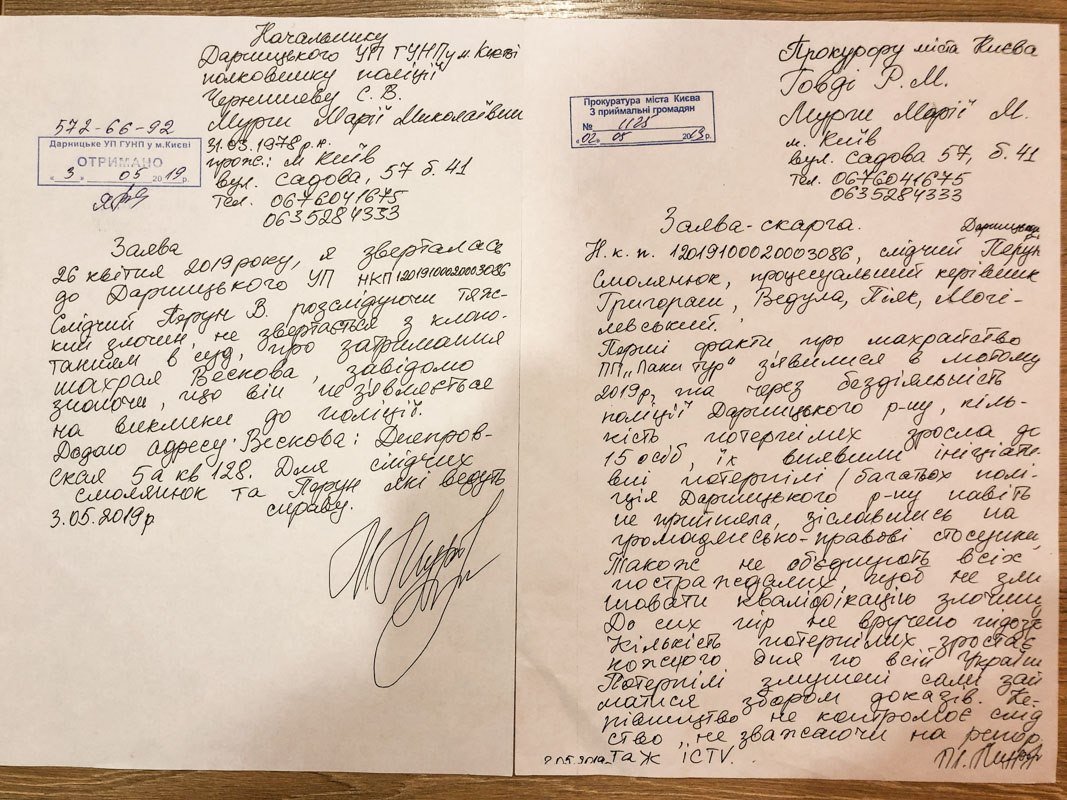 Начальнику
Дарницького УП ГУНП у м. Києві
полковнику поліції
Чернишеву С. В.
Мурги Марії Миколаївни
31.03.1978 р.н.
прож.: м Київ
вул. Садова, 57 б. 41
тел. 0676041675
0635284333
572-66-92
Дарницьке УП ГУНП у м.Києві
ОТРИМАНО
« 3 » 05 2019 р.
Заява
26 квітня 2019 року, я зверталась
до Дарницького УП НКП 12019100020003086
Слідчий Перун В. розслідуючи тяж-
кий злочин, не звертається з клопо-
танням в суд, про затримання
шахрая Вескова, завідомо
знаючи, що він не зявляється
на виклики до поліції.
Додаю адресу Вескова: Днепров-
ская 5а кв 128. Для слідчих
Смолянюк та Перун які ведуть
справу.
3.05.2019р
Прокурору міста Києва
Говді Р. М.
Мурги Марії М.
м. Київ
вул. Садова 57, б. 41
тел. 0676041675
0635284333
Прокуратура міста Києва
З приймальні громадян
№ 1125
« 02 » 05 2019 р.
Заява-скарга.
Дарницьк.
Н. к. п. 12019100020003086, слідчий Перун
Смолянюк, процесуальний керівник
Григораш, Ведула, Піяк, Могі-
левський.
Перші факти про шахрайство
ПП „Лаки Тур" зявилися в лютому
2019р, та через бездіяльність
поліції Дарницького р-ну, кіль-
кість потерпілих зросла до
15 осіб, їх виявили ініціати
вні потерпілі / багатьох полі-
ція Дарницького р-ну навіть
не прийняла, зіславшись на
громадянсько-правові стосунки,
Також не обєднують всіх
постраждалих, щоб не змі
нювати кваліфікацію злочину
До сих пір не вручено підозр
Кількість потерпілих зростає
кожного дня по всій Україні
Потерпілі змушені самі зай
матися збором доказів. Ке-
рівництво не контролює слід
ство, не зважаючи на репор.
таж ICTV.
2.05.2019